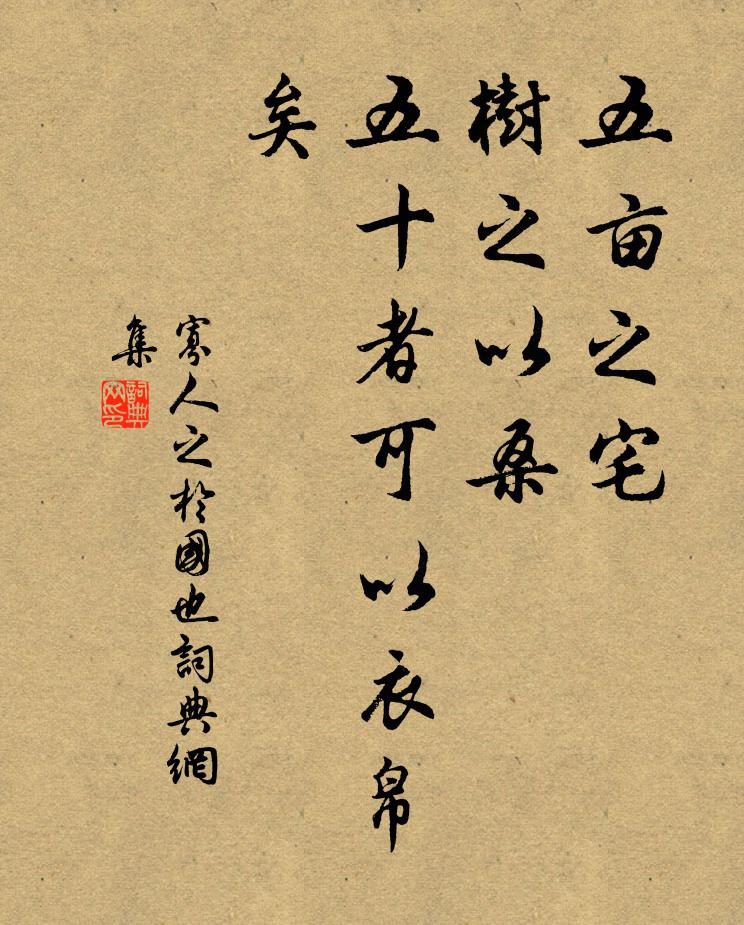 五亩之宅
樹之以桑
五十者可以衣帛
矣
寡人之於國也詞典網
集
詞典
网印